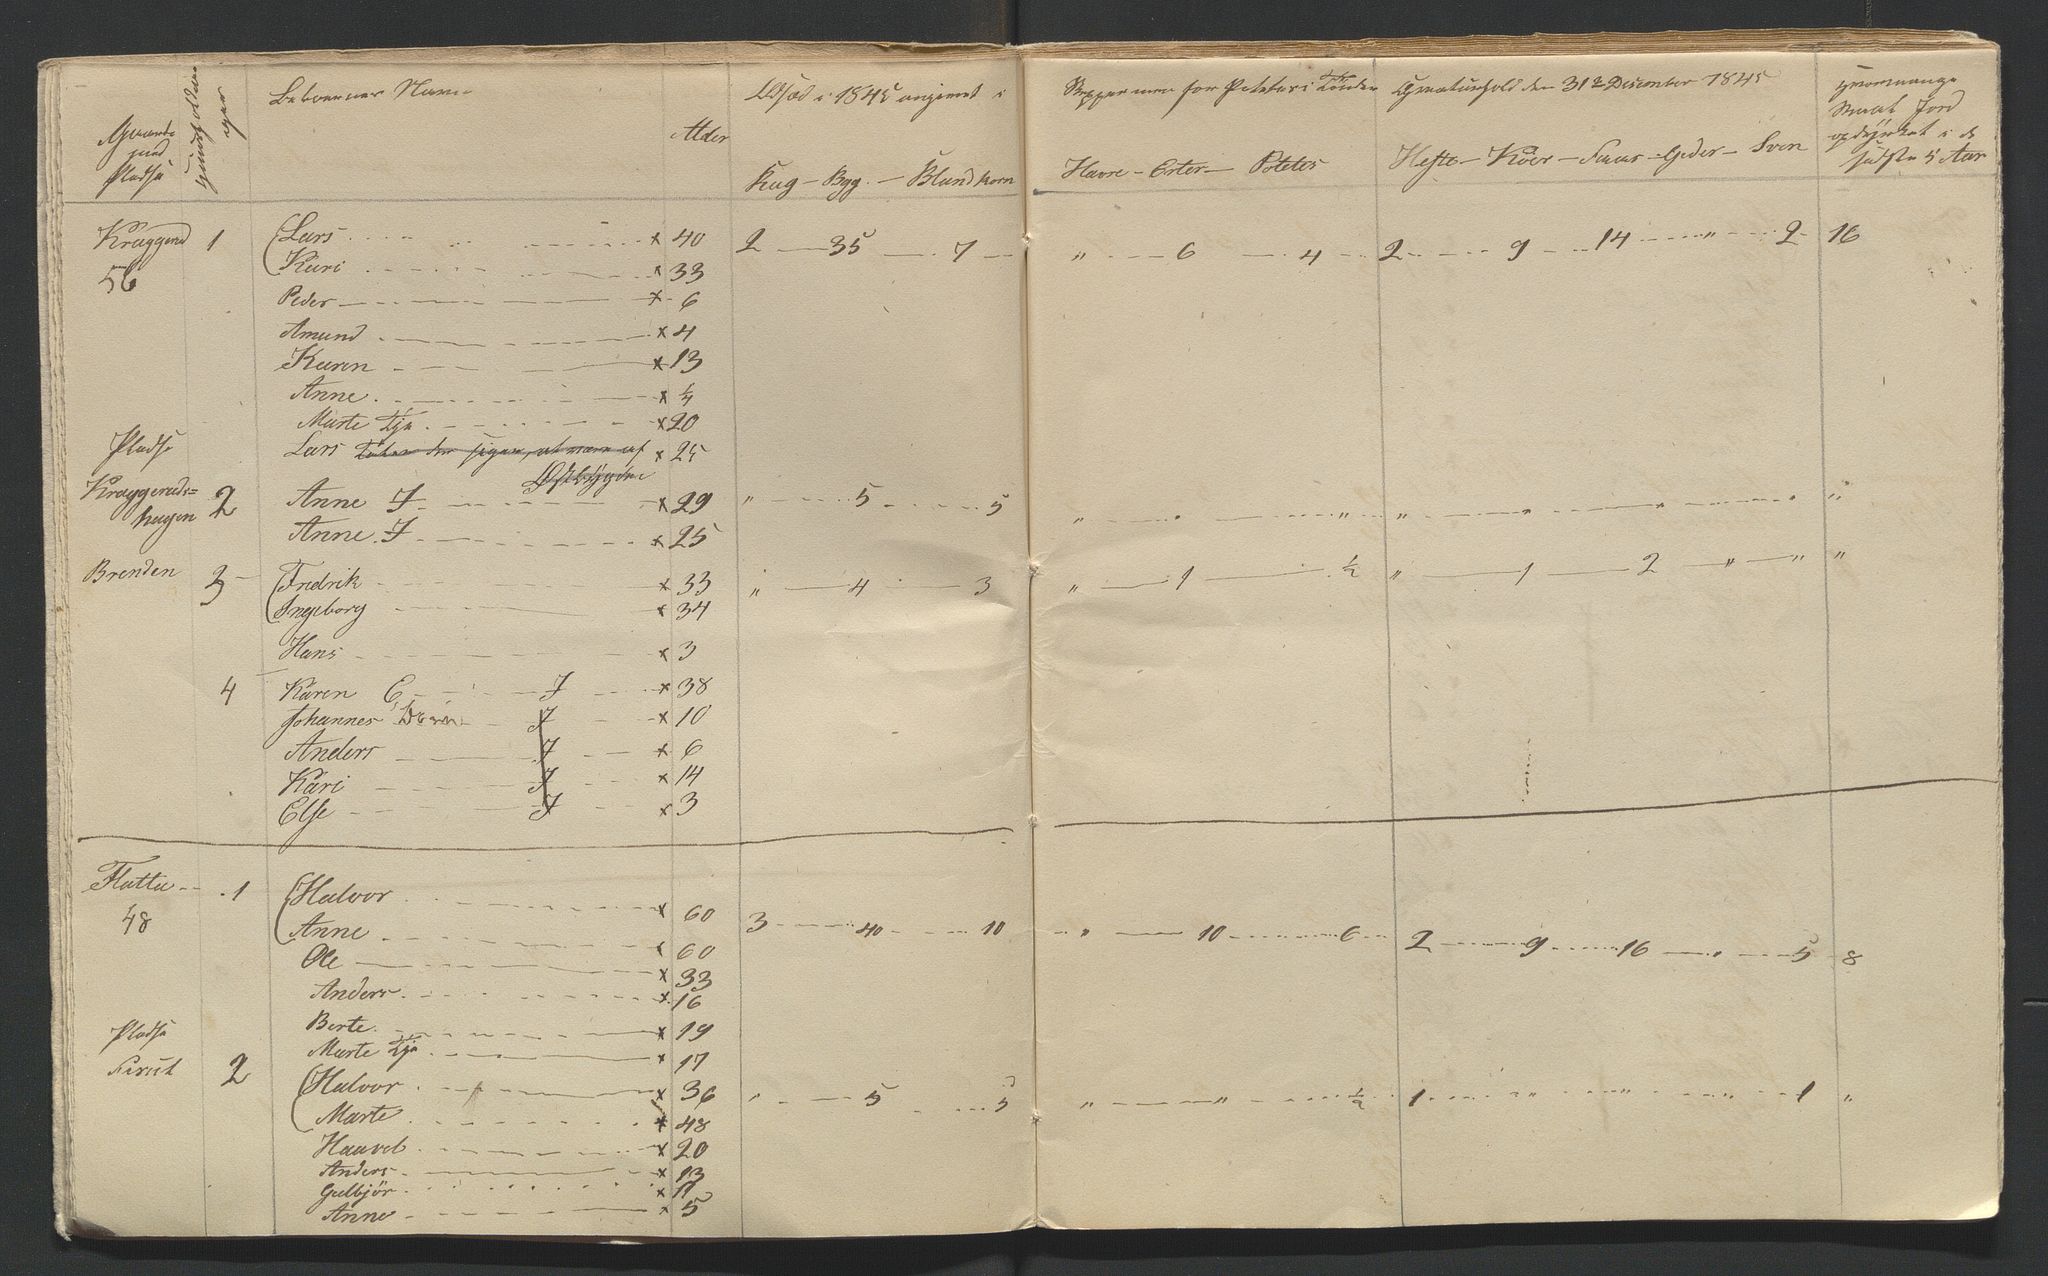 Gaarde med Pladse
Huusholdninger
Beboernes Navne
Alder
Udsæd i 1845 angivet i
Rug - Byg. - Blandkorn
Skjepper men for Poteter i Tønder
Havre - Erter - Poteter
Creaturhold den 31te December 1845
Heste - Köer - Faar - Geder - Sviin
hvormange Maal Jord opdyrket i de sidste 5 Aar
Kraggerud 1 Lars x 40 2 35 7 " 6 4 2 9 14 " 2 16
56 Kari x 33
Peder x 6
Amund x 4
Karen x 13
Anne x ¼
Marte Tj x 20
Pladse Lars x 25
Kraggeruds= 2 Anne F x 29 " 5 5 " " " " "
hagen Anne F x 25
Brenden 3 Fredrik x 33 " 4 3 " 1 ½ " 1 2 " " "
Ingeborg x 34
Hans x 3
4 Karen E F x 38
Johannes F x 10
Anders F x 6
Kari F x 14
Else F x 3
Flatta 1 Halvor x 60 3 40 10 " 10 6 2 9 16 " 5 8
48 Anne x 60
Ole x 33
Anders x 16
Berte x 19
Pladse Marte Tj x 17
2 Halvor x 36 " 5 5 " " ½ 1 " " " 1 "
Marte x 48
Haavel x 20
Anders x 13
Gulbjör x 11
Anne x 5